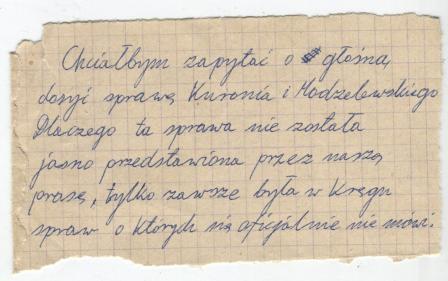 Chciałbym zapytać o głośną
dosyć sprawę Kuronia i Modzelewskiego
Dlaczego ta sprawa nie została
jasno przedstawiona przez naszą
prasę, tylko zawsze była w Kręgu
spraw o których się oficjalnie nie mówi.